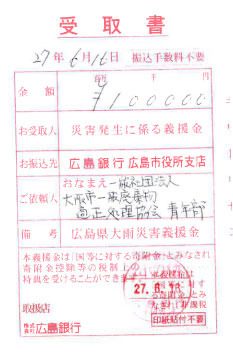 受取書
27年6月16日 振込手数料不要
金額 百万 千 円
¥100000
お受取人 災害発生に係る義援金
お振込先 広島銀行 広島市役所支店
ご依頼人 おなまえ 一般社団法人
大阪市一般廃棄物
適正処理協会 青年部
備考 広島県大雨災害義援金
本義援金は「国等に対する寄附金」とみなされ
寄附金控除等の税制上の
特典を受けることができます
27.6.16
取扱店 印紙貼付不要
株式会社 広島銀行